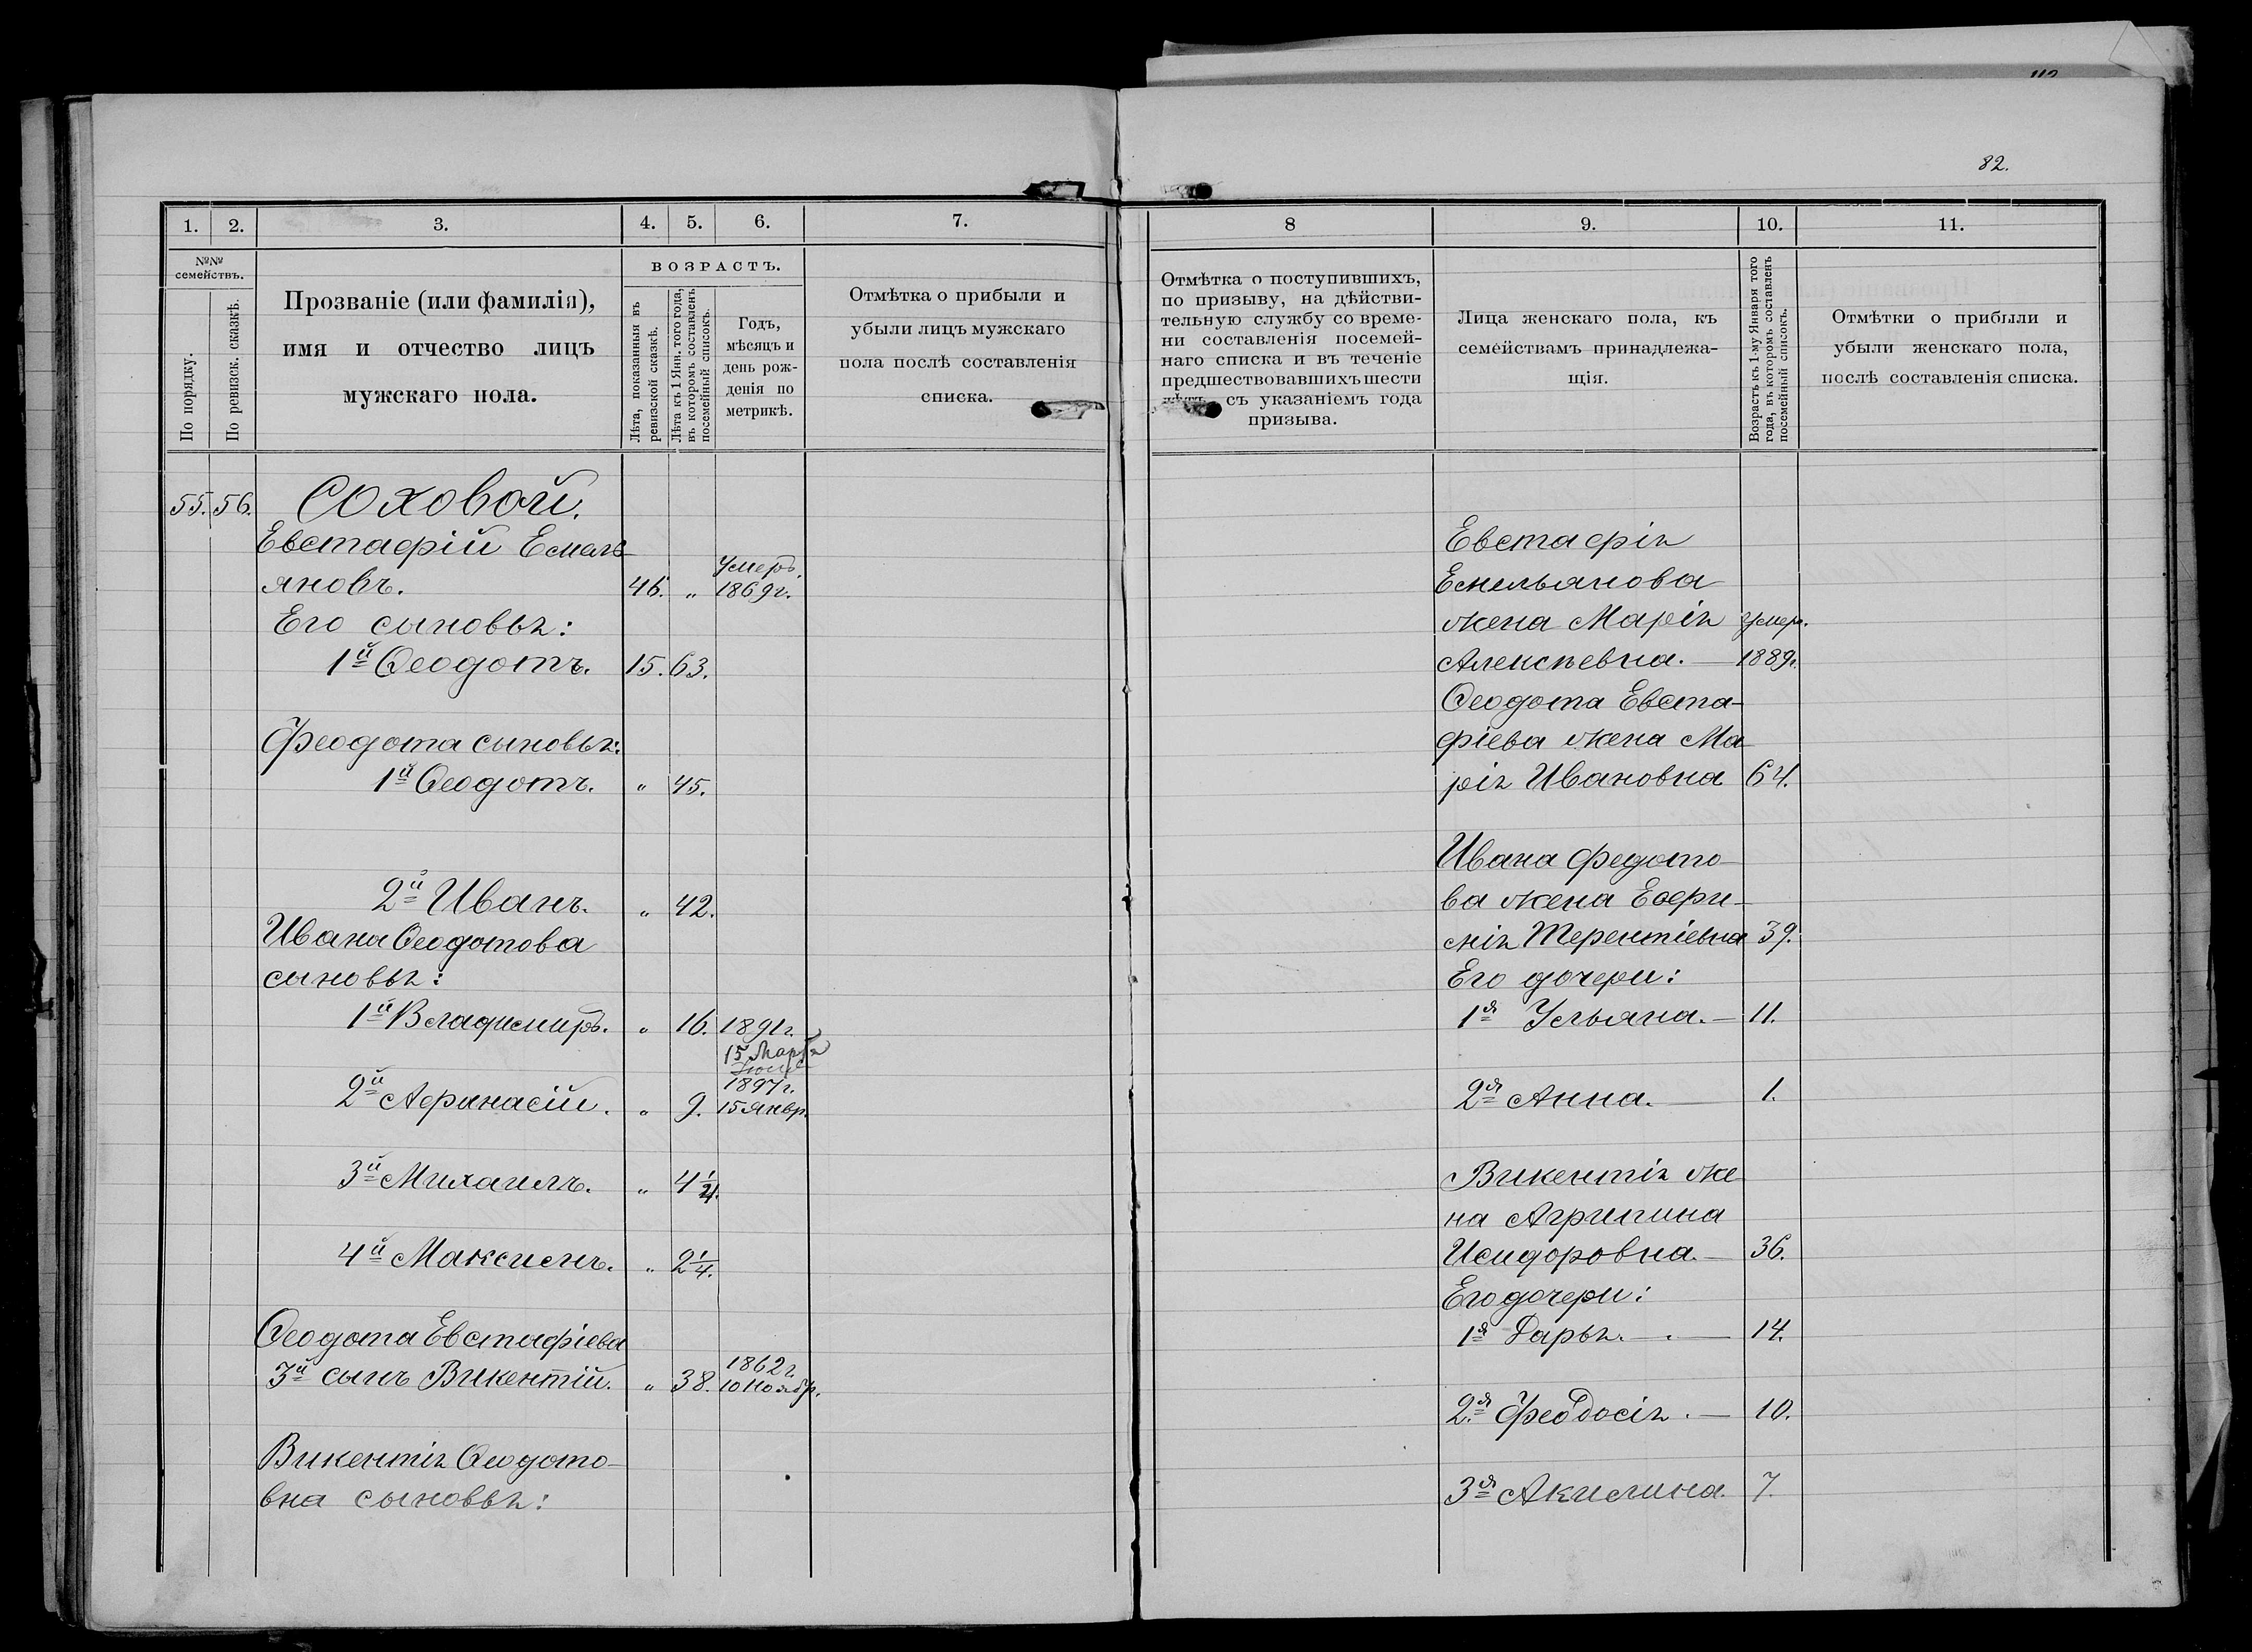 112
82.
1. 2. 3. 4. 5. 6. 7.
№№ семействъ.
По порядку.
По ревизск. сказкѣ.
Прозваніе (или фамилія),
имя и отчество лицъ
мужскаго пола.
ВОЗРАСТЪ.
Лѣта, показанныя въ
ревизской сказкѣ.
Лѣта къ 1 Янв. того года,
въ которомъ составленъ
посемейный списокъ.
Годъ,
мѣсяцъ и
день рож-
денія по
метрикѣ.
Отмѣтка о прибыли и
убыли лицъ мужскаго
пола послѣ составленія
списка.
55. 56. Соховой.
Евстафій Емель-
яновъ. 46. „ Умеръ 1869г.
Его сыновья:
1й Ѳеодотъ. 15. 63.
Феодота сыновья:
1й Ѳеодотъ. „ 45.
2й Иванъ. „ 42.
Ивана Ѳеодотова
сыновья:
1й Владимиръ. „ 16. 1891г.
15 Марта
1897г.
2й Афанасій. „ 9. 15 Январ.
3й Михаилъ. „ 4 1/2.
4й Максимъ. „ 2 1/4.
Ѳеодота Евстафіева
3й сынъ Викентій. „ 38. 1862г. 10 Ноябр.
Викентія Ѳеодото-
вна сыновья:
8 9. 10. 11.
Отмѣтка о поступившихъ,
по призыву, на дѣйстви-
тельную службу со време-
ни составленія посемей-
наго списка и въ теченіе
предшествовавшихъ шести
лѣтъ, съ указаніемъ года
призыва.
Лица женскаго пола, къ
семействамъ принадлежа-
щія.
Возрастъ къ 1-му Января того
года, въ которомъ составленъ
посемейный списокъ.
Отмѣтки о прибыли и
убыли женскаго пола,
послѣ составленія списка.
Евстафія
Емельянова
жена Марія Умер.
Алексѣевна. — 1889г.
Ѳеодота Евста-
фіева жена Ма-
рія Ивановна 64.
Ивана Федото-
ва жена Ефри-
снія Терентіевна 39.
Его дочери:
1я Ульяна. — 11.
2я Анна. — 1.
Викентія же-
на Агрипина
Исидоровна. — 36.
Его дочери:
1я Дарья. — 14.
2я Феодосія. — 10.
3я Акилина. 7.